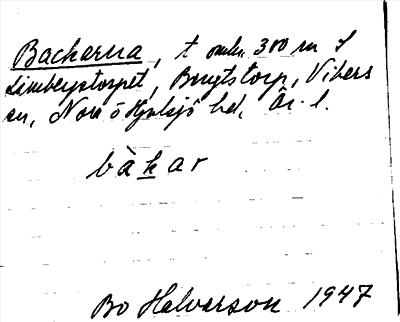 Backarna, t omkr. 300 m S
Limbergstorpet, Brugtstorp, Vibers
en, Nora ö Hjulsjö bd, Ör. l.
bàkar
Bo Halvarson 1947